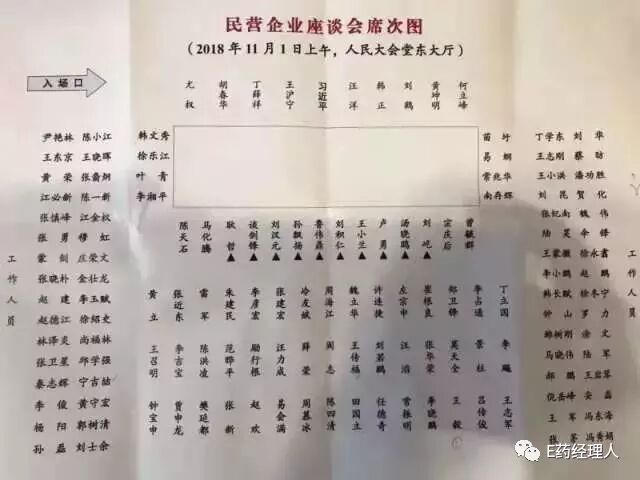 民营企业座谈会席次图
(2018年11月1日上午，人民大会堂东大厅)
入场口
尤权 胡春华 丁薛祥 王沪宁 习近平 汪洋 韩正 刘鹤 黄坤明 何立峰
尹艳林 陈小江
王东京 王晓晖
黄荣 张裔炯
江必新 陈一新
张慎峰 江金权
张勇 穆虹
蒙剑 庄荣文
张晓朴 金壮龙
赵建 李玉赋
赵德江 徐绍史
林泽炎 尚福林
张卫星 邱学强
秦志辉 宁吉喆
李俊 黄守宏
杨阳 郭树清
孙磊 刘士余
工作人员
韩文秀
徐乐江
叶青
李湘平
苗圩
易纲
常兆华
南存辉
陈天石 马化腾 耿哲▲ 谈剑锋▲ 刘汉元▲ 孙飘扬▲ 鲁伟鼎▲ 刘积仁▲ 王小兰▲ 卢勇▲ 汤晓鸥▲ 刘屹▲ 宗庆后 曾毓群
黄立 张近东 雷军 朱建民 李彦宏 张建宏 冷友斌 周海江 魏立华 许连捷 左宗申 崔根良 郑卫锋 李占通 丁立国
王召明 李吉宝 陈洪凌 范晔平 励行根 汪力成 薛荣 周志 王传福 刘若鹏 汪滔 张华荣 莫天全 景柱 李飚
钟宝申 贾申龙 樊延都 张新 赵欢 易会满 周慕冰 陈四清 田国立 任德奇 常振明 李晓鹏 王毅 吕传俊 王志军
丁学东 刘华
王志刚 蔡昉
王小洪 潘功胜
刘昆 贺化
魏伟
陆昊
王蒙徽 徐永鑫
李小鹏 赵
韩长赋 徐冬宁
钟山 罗力
鄢树刚 涂文
马晓伟 陆军
郝鹏 王岩
倪岳峰 姜
王军 冯东海
张茅 冯秀娟
工作人员
E药经理人